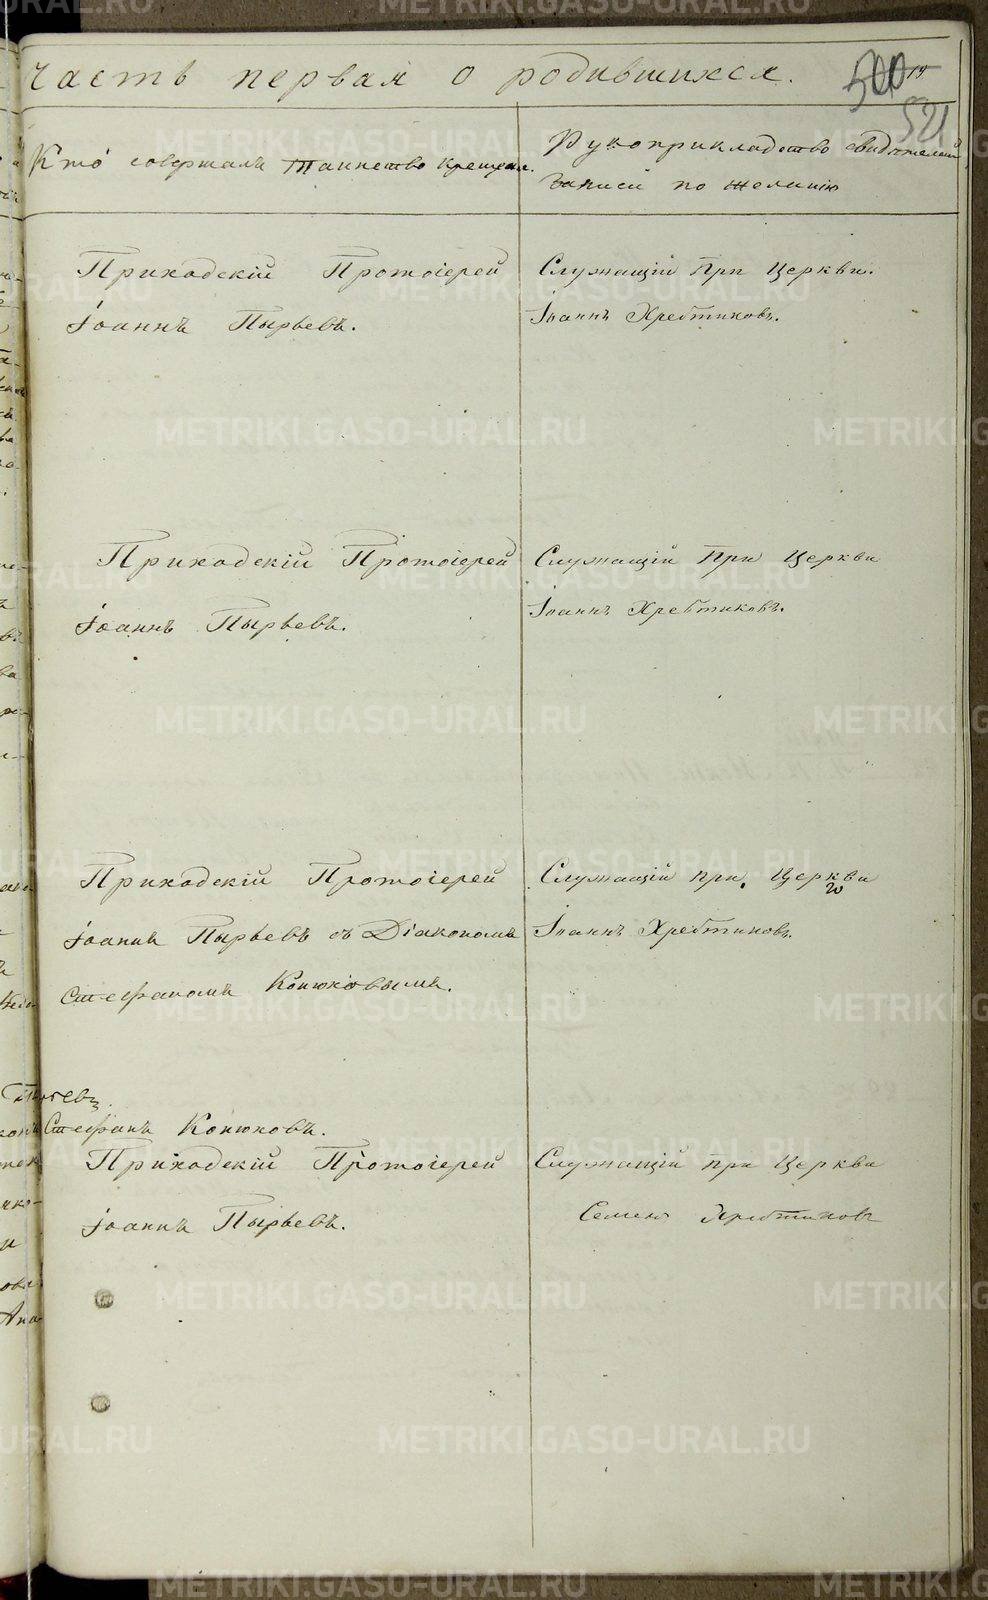 часть первая о родившихся.
500 19
521
Кто совершалъ таинство крещенія.
Рукоприкладство свидѣтелей
записи по желанію
Приходскій Протоіерей
Іоаннъ Пырьевъ.
Служащій при Церкви.
Іоаннъ Хребтиковъ.
Приходскій Протоіерей
Іоаннъ Пырьевъ.
Служащій при Церкви
Іоаннъ Хребтиковъ.
Приходскій Протоіерей
Іоаннъ Пырьевъ съ Діакономъ
Стефаномъ Конюховымъ.
Служащій при Церкви
Іоаннъ Хребтиковъ.
Стефанъ Конюховъ.
Приходскій Протоіерей
Іоаннъ Пырьевъ.
Служащій при Церкви
Семенъ Хребтиковъ
METRIKI.GASO-URAL.RU